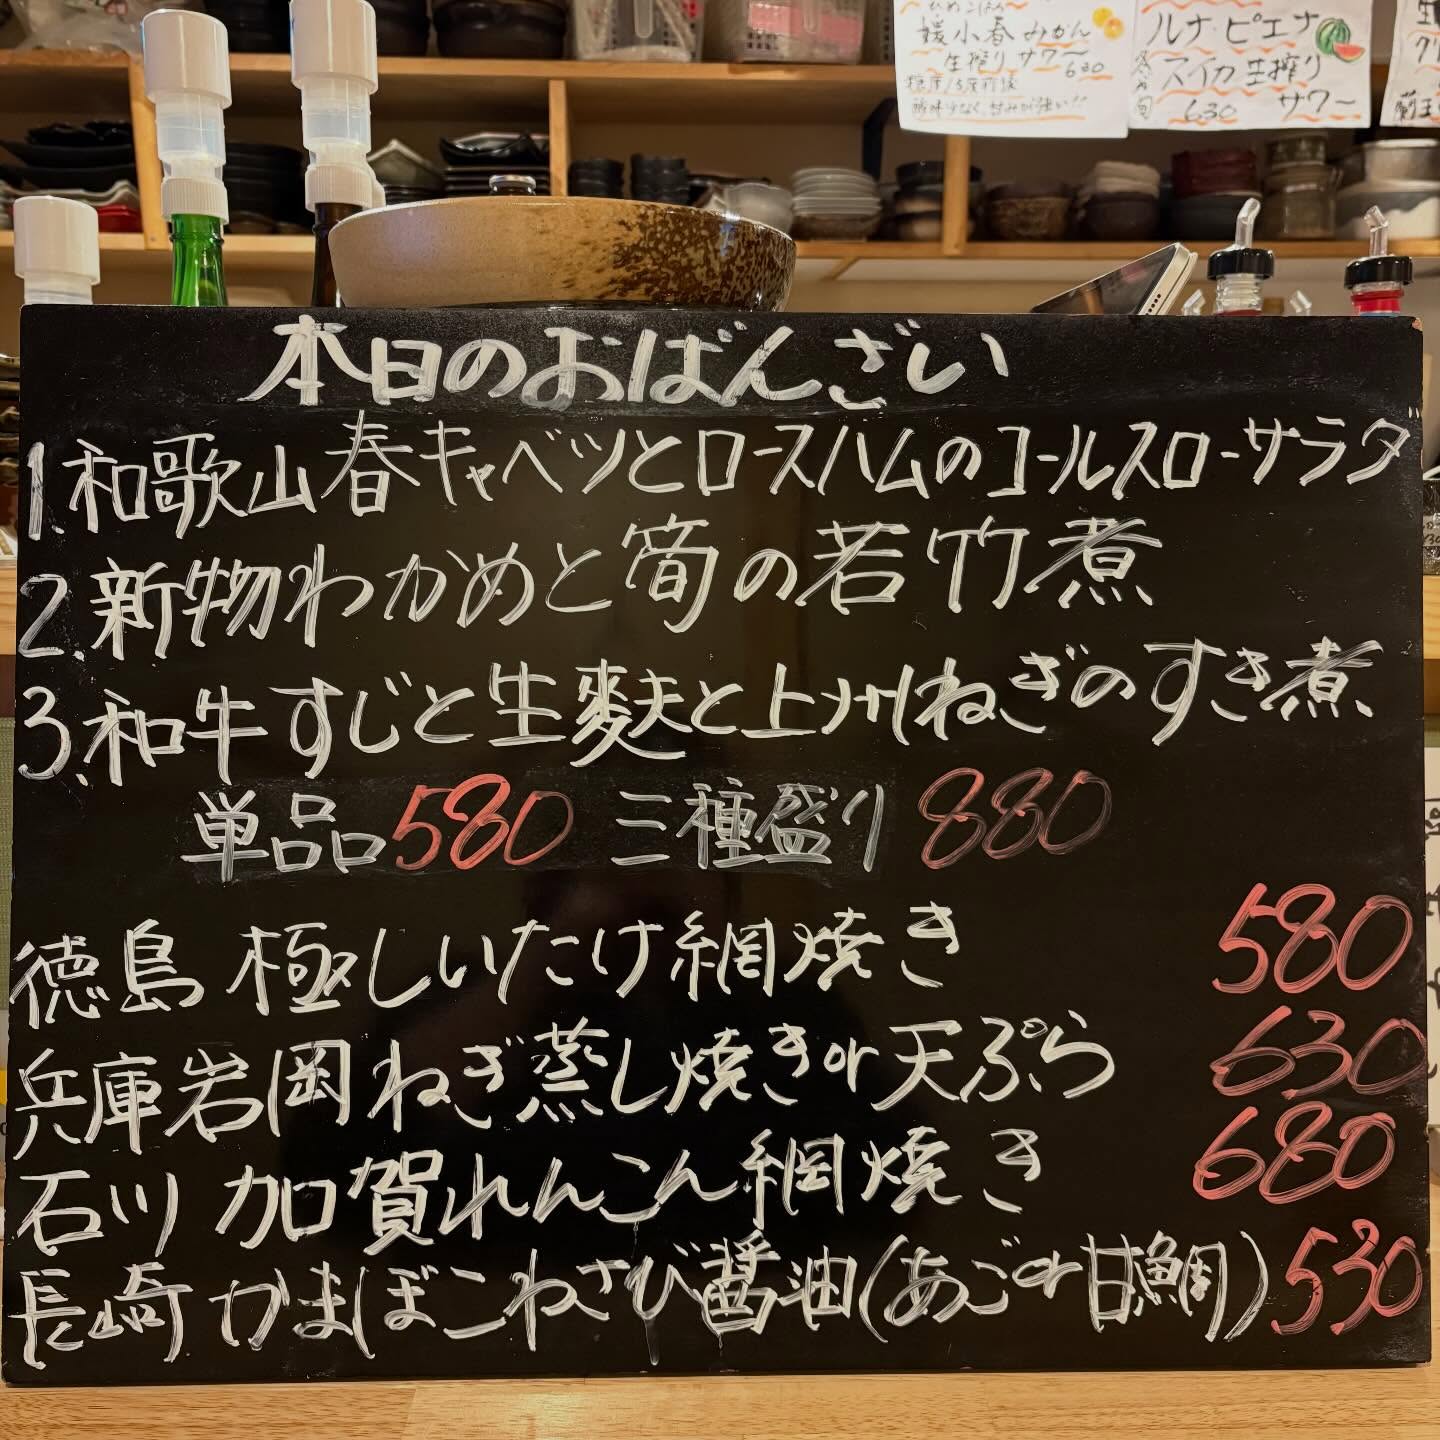 媛小春みかん
生搾りサワー
630
ルナ・ピエナ
スイカ生搾り
630 サワー
本日のおばんざい
1.和歌山春キャベツとロースハムのコールスローサラダ
2.新物わかめと筍の若竹煮
3.和牛すじと生麩と上州ねぎのすき煮
単品580 三種盛り 880
徳島 極しいたけ網焼き 580
兵庫岩岡ねぎ蒸し焼きor天ぷら 630
石川 加賀れんこん網焼き 680
長崎 かまぼこわさび醤油(あごor甘鯛) 530